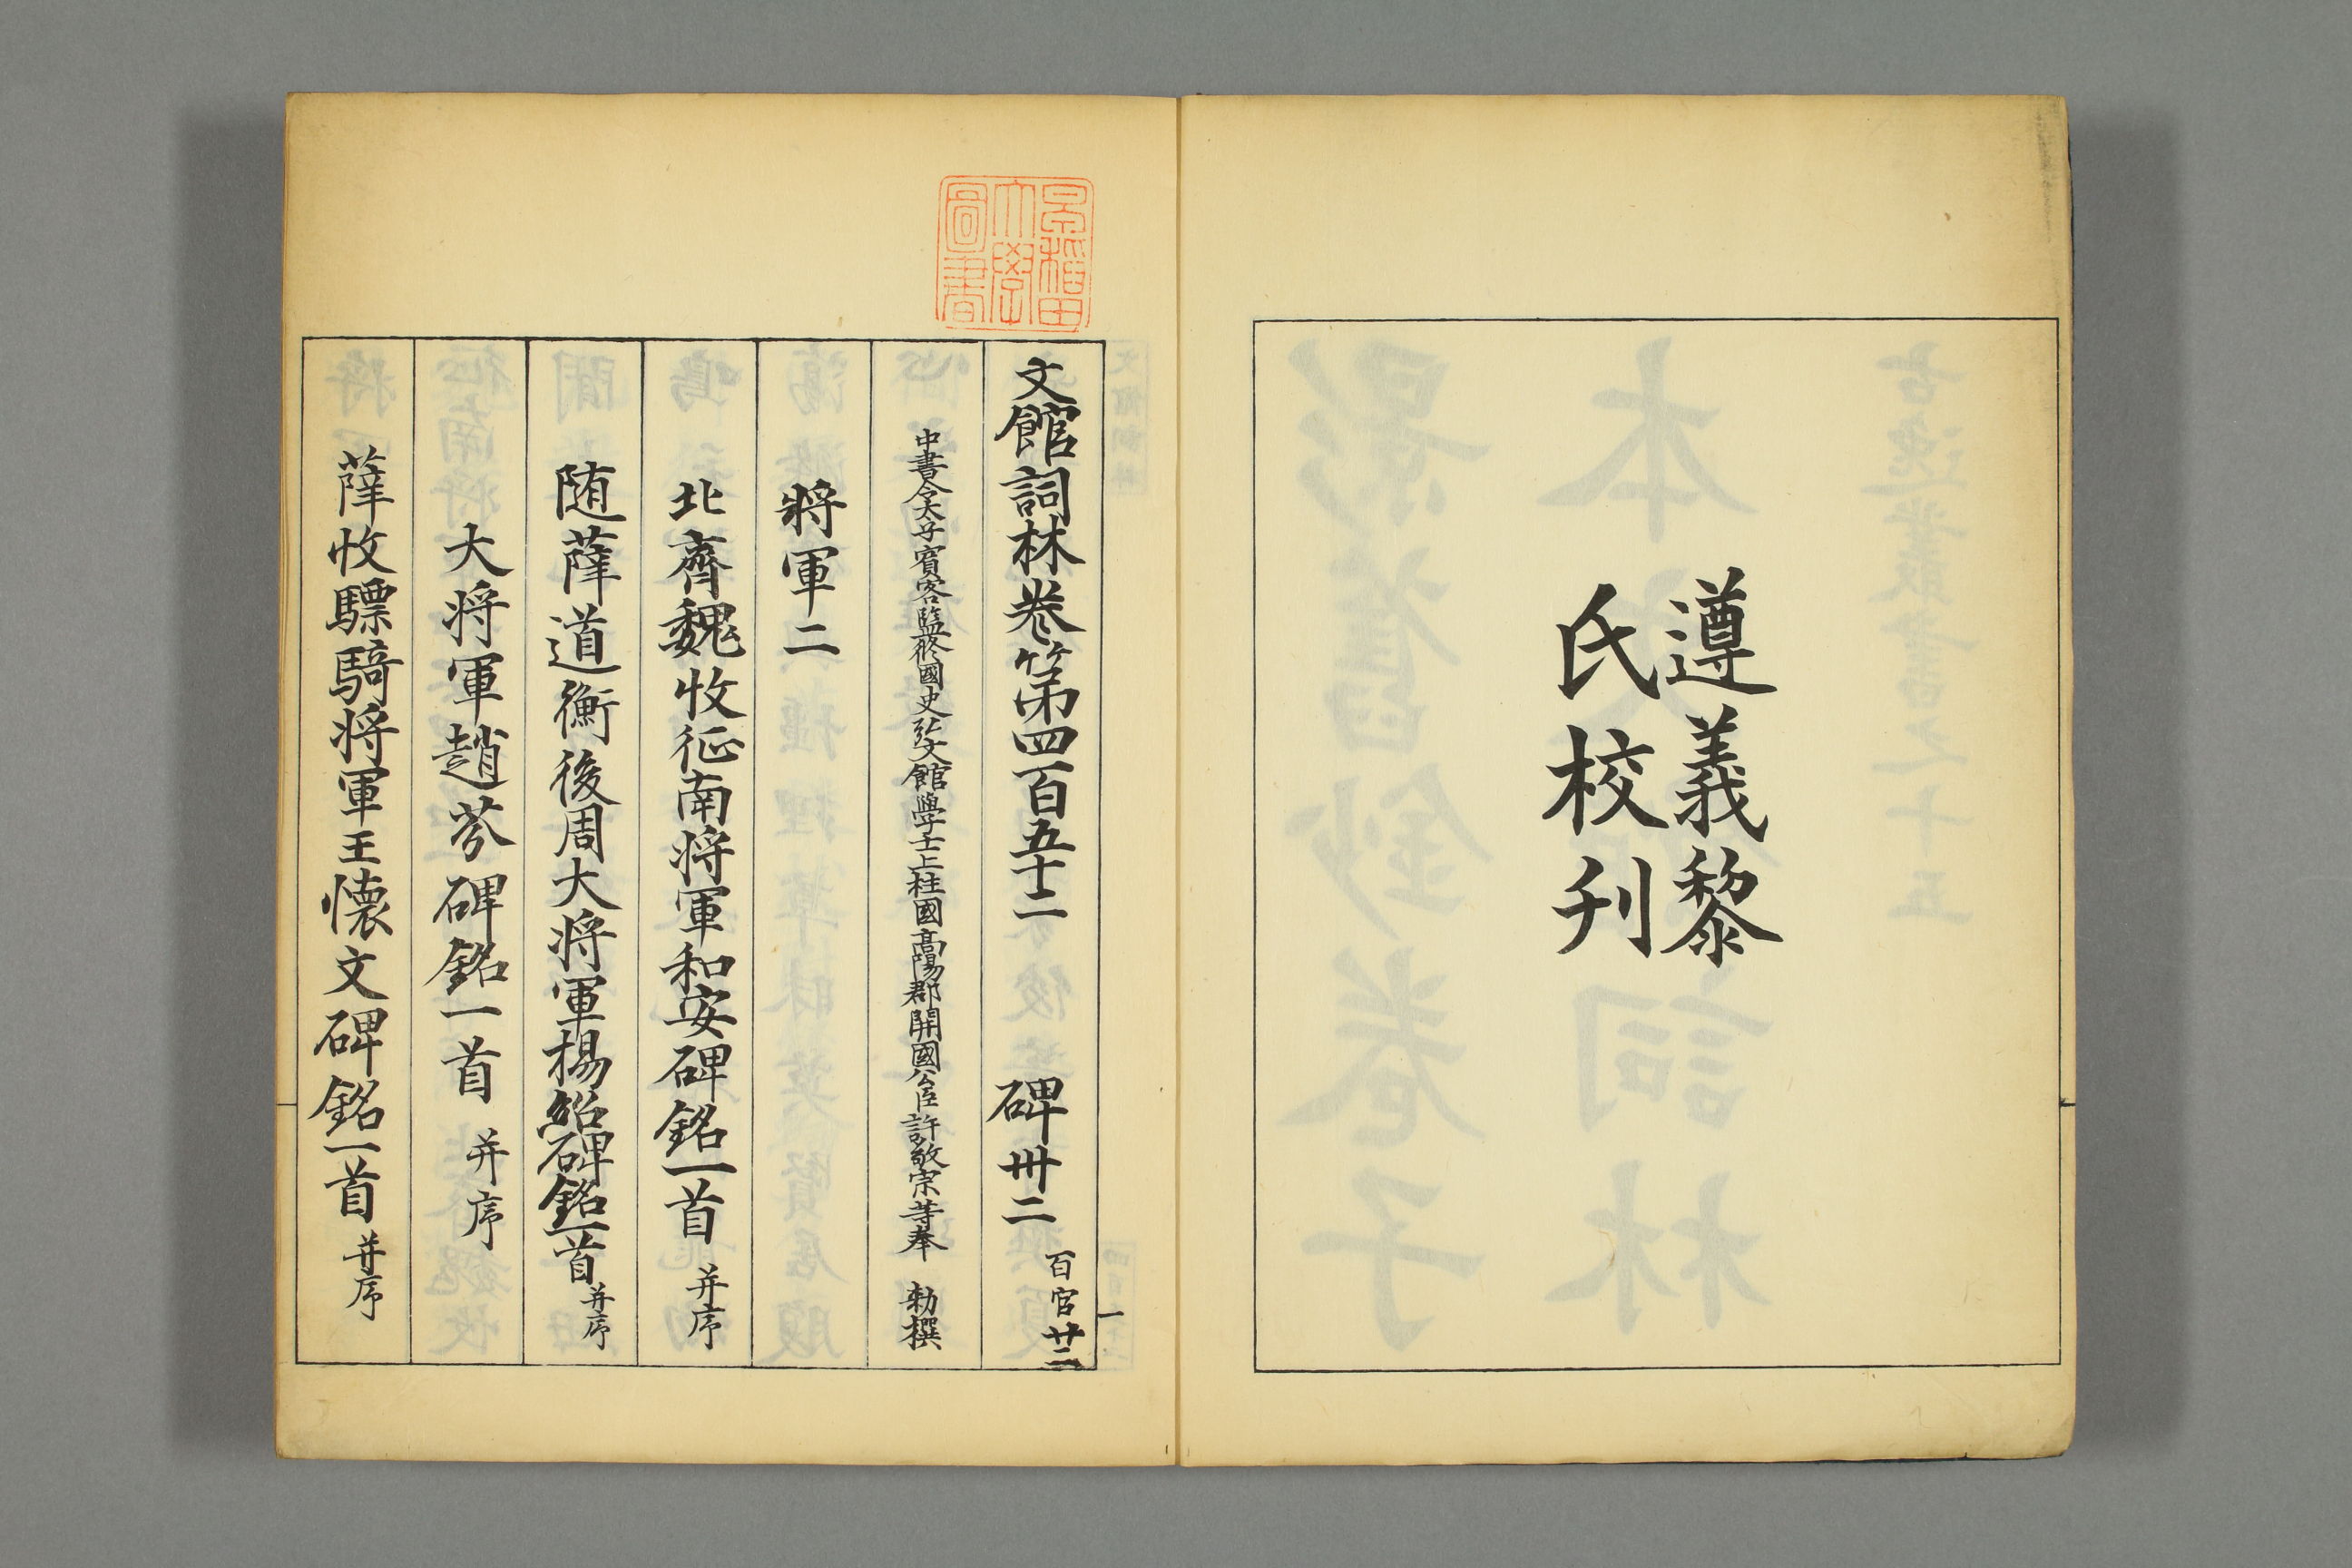 遵義黎
氏校刊
早稻田
大學
圖書
文館詞林卷第四百五十二 碑卅二 百官廿二
中書令太子賓客監修國史弘文館學士上柱國高陽郡開國公臣許敬宗等奉 勅撰
將軍二
北齊魏收征南將軍和安碑銘一首 并序
随薛道衡後周大將軍楊紹碑銘一首 并序
大將軍趙芬碑銘一首 并序
薛收驃騎將軍王懷文碑銘一首 并序
一